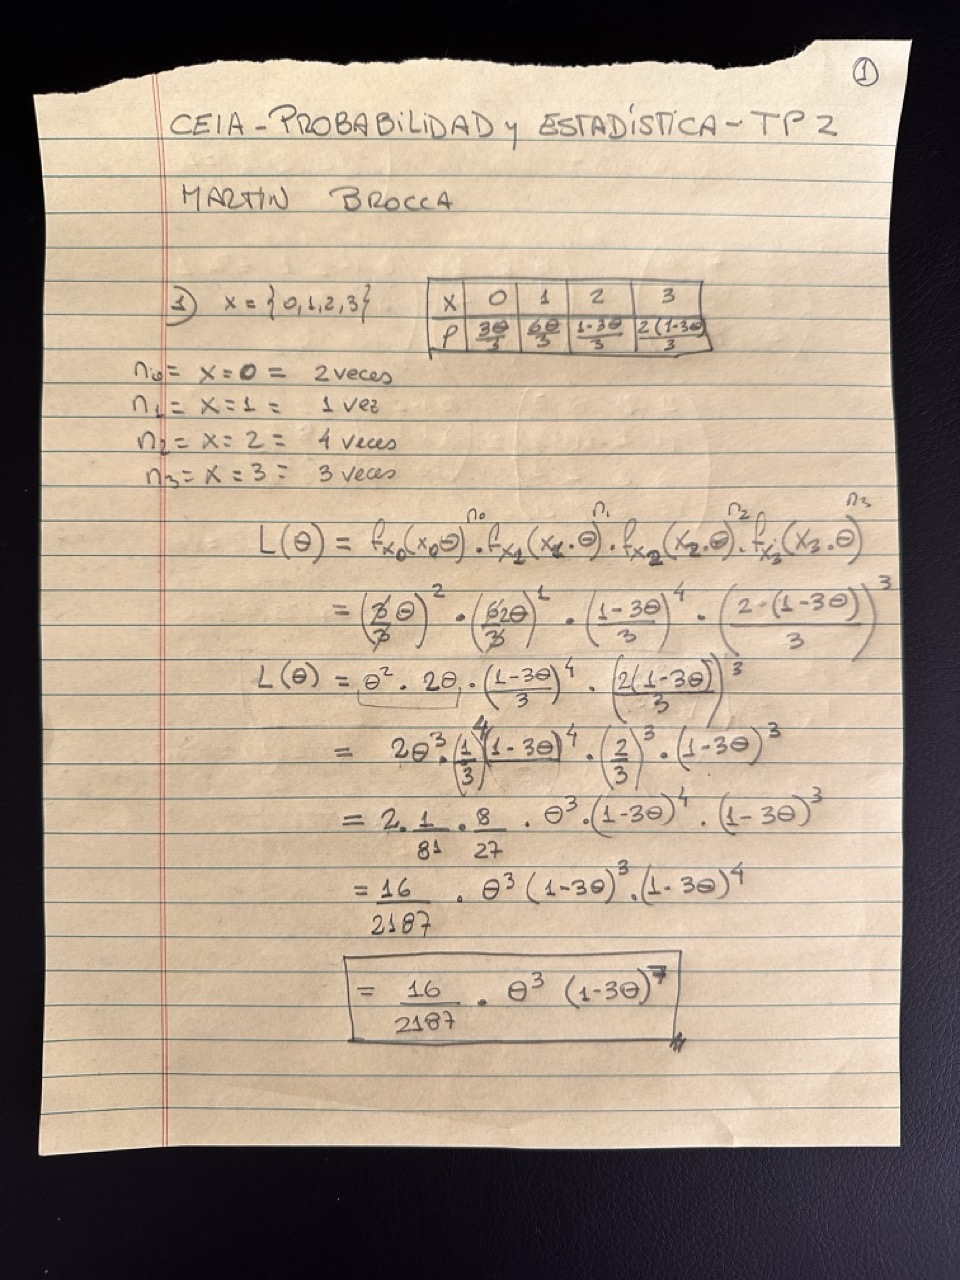 ①
CEIA - PROBABILIDAD y ESTADÍSTICA - TP 2
MARTIN BROCCA
1) x = {0,1,2,3}
X | 0 | 1 | 2 | 3
P | 3θ/3 | 6θ/3 | 1-3θ/3 | 2(1-3θ)/3
n₀ = x = 0 = 2 veces
n₁ = x = 1 = 1 vez
n₂ = x = 2 = 4 veces
n₃ = x = 3 = 3 veces
L(θ) = fx₀(x₀θ)^n₀ . fx₁(x₁.θ)^n₁ . fx₂(x₂.θ)^n₂ . fx₃(x₃.θ)^n₃
= (3/3 θ)² . (6/3 2θ)¹ . (1-3θ/3)⁴ . (2.(1-3θ)/3)³
L(θ) = θ² . 2θ . (1-3θ/3)⁴ . (2(1-3θ)/3)³
= 2θ³ . (1/3)⁴ (1-3θ)⁴ . (2/3)³ . (1-3θ)³
= 2 . 1/81 . 8/27 . θ³ . (1-3θ)⁴ . (1-3θ)³
= 16/2187 . θ³ (1-3θ)³ . (1-3θ)⁴
= 16/2187 . θ³ (1-3θ)⁷